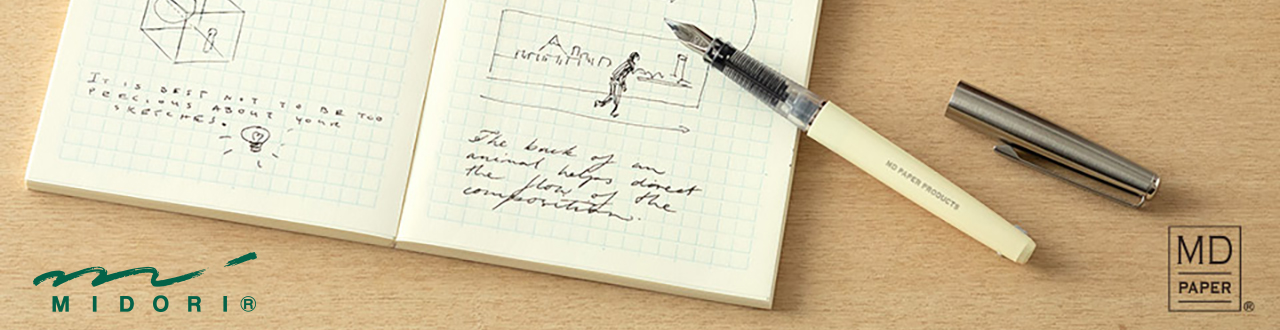 IT IS BEST NOT TO BE TOO
PRECIOUS ABOUT YOUR
SKETCHES.
The back of an
animal helps direct
the flow of the
composition.
MD PAPER PRODUCTS
MIDORI®
MD
PAPER
®